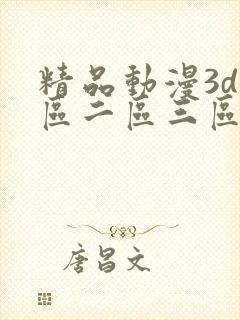 精品動漫3d
區二區三區
唐昌文